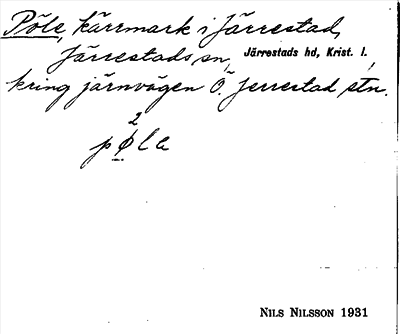 Pöle, kärrmark i Järrestad,
Järrestads sn, Järrestads hd, Krist. l.,
kring järnvägen Ö. Jerrestad stn.
2
pøla
NILS NILSSON 1931